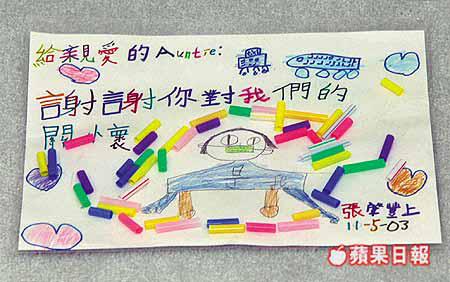 給親愛的Auntie:
謝謝你對我們的
關心
張榮豐上
11-5-03
蘋果日報